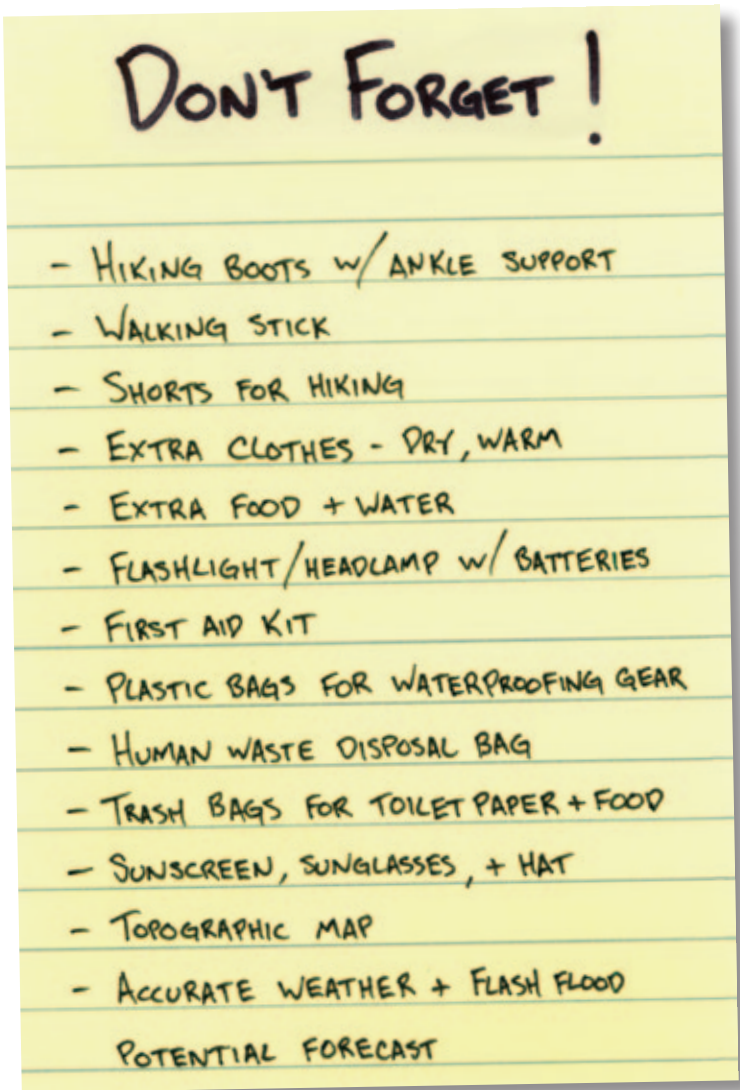 DON'T FORGET!
- HIKING BOOTS W/ ANKLE SUPPORT
- WALKING STICK
- SHORTS FOR HIKING
- EXTRA CLOTHES - DRY, WARM
- EXTRA FOOD + WATER
- FLASHLIGHT/HEADLAMP W/ BATTERIES
- FIRST AID KIT
- PLASTIC BAGS FOR WATERPROOFING GEAR
- HUMAN WASTE DISPOSAL BAG
- TRASH BAGS FOR TOILET PAPER + FOOD
- SUNSCREEN, SUNGLASSES, + HAT
- TOPOGRAPHIC MAP
- ACCURATE WEATHER + FLASH FLOOD
POTENTIAL FORECAST